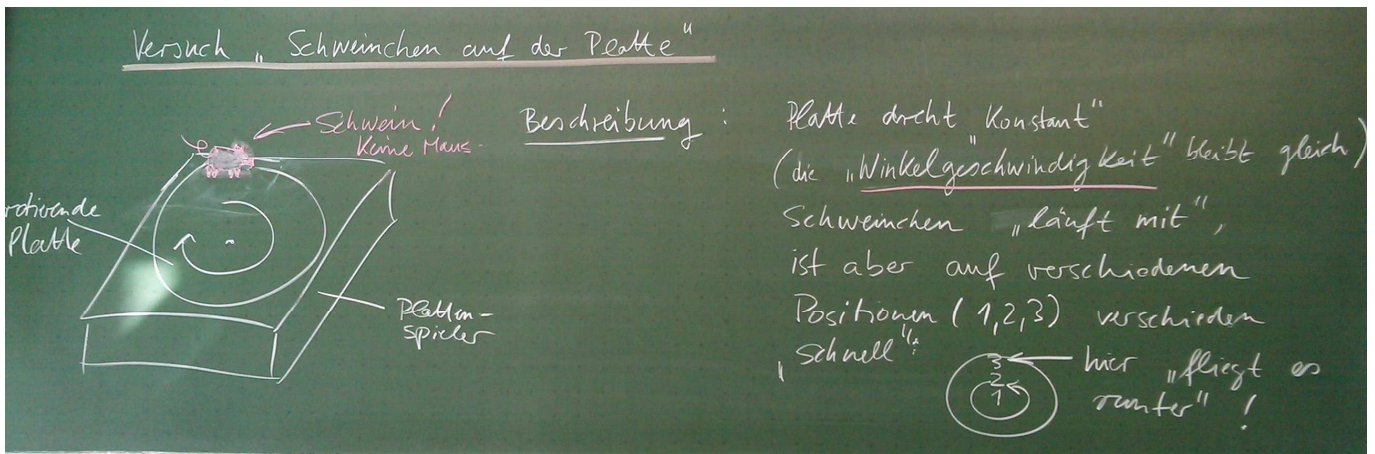 Versuch „Schweinchen auf der Platte“
Schwein!
Keine Maus
rotierende
Platte
Platten-
spieler
Beschreibung:
Platte dreht „Konstant“
(die „Winkelgeschwindigkeit“ bleibt gleich)
Schweinchen „läuft mit“,
ist aber auf verschiedenen
Positionen (1,2,3) verschieden
„Schnell“:
3
2
1
hier „fliegt es
runter“!